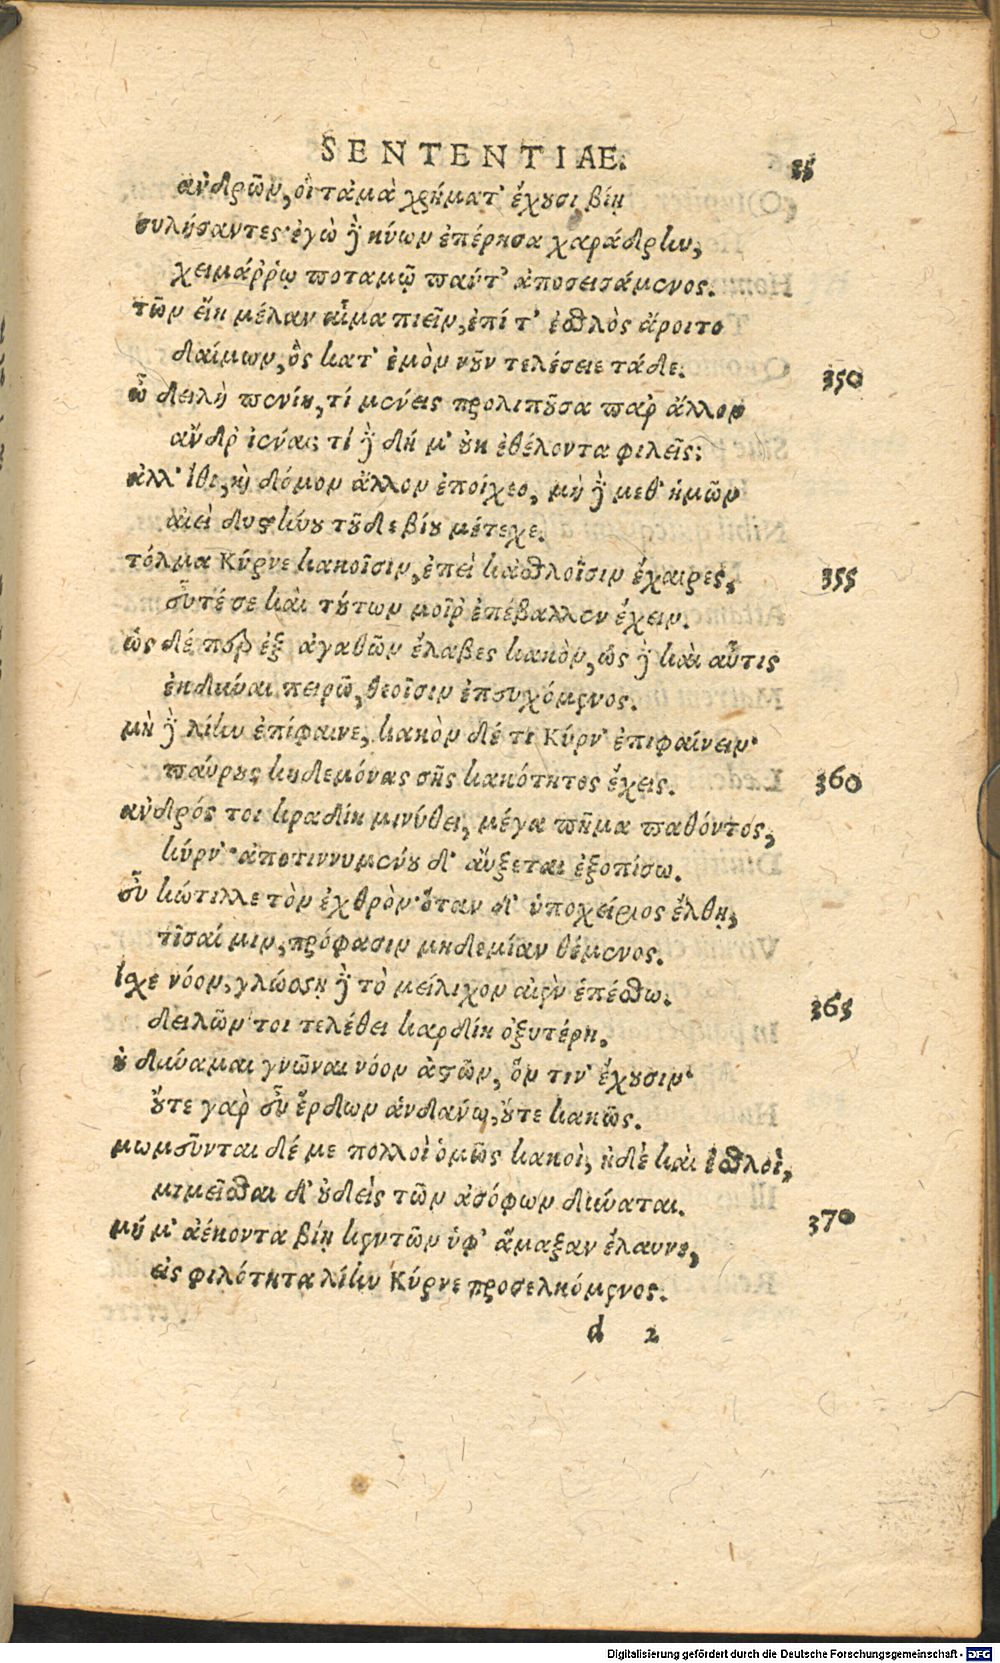 SENTENTIAE. 55
ἀνδρῶν, οἳ τἀμὰ χρήματ' ἔχουσι βίῃ
συλήσαντες· ἐγὼ δὲ κύων ἐπέρησα χαράδρην,
χειμάῤῥῳ ποταμῷ πάντ' ἀποσεισάμενος.
τῶν εἴη μέλαν αἷμα πιεῖν, ἐπί τ' ἐσθλὸς ἄροιτο
δαίμων, ὃς κατ' ἐμὸν νοῦν τελέσειε τάδε. 350
ὦ δειλὴ πενίη, τί μένεις προλιποῦσα παρ' ἄλλον
ἄνδρ' ἰέναι; τί δὲ δή μ' οὐκ ἐθέλοντα φιλεῖς;
ἀλλ' ἴθι, καὶ δόμον ἄλλον ἐποίχεο, μὴ δὲ μεθ' ἡμῶν
αἰεὶ δυστήνου τοῦδε βίου μέτεχε.
τόλμα Κύρνε κακοῖσιν, ἐπεὶ κἀσθλοῖσιν ἔχαιρες, 355
εὖτέ σε καὶ τούτων μοῖρ' ἐπέβαλλεν ἔχειν.
ὡς δέ περ ἐξ ἀγαθῶν ἔλαβες κακὸν, ὣς δὲ καὶ αὖτις
ἐκδῦναι πειρῶ, θεοῖσιν ἐπευχόμενος.
μὴ δὲ λίην ἐπίφαινε, κακὸν δέ τι Κύρν' ἐπιφαίνειν·
παύρους κηδεμόνας σῆς κακότητος ἔχεις. 360
ἀνδρός τοι κραδίη μινύθει, μέγα πῆμα παθόντος,
κύρν'· ἀποτιννυμένου δ' αὔξεται ἐξοπίσω.
εὖ κώτιλλε τὸν ἐχθρὸν· ὅταν δ' ὑποχείριος ἔλθῃ,
τῖσαί μιν, πρόφασιν μηδεμίαν θέμενος.
ἴσχε νόον, γλώσσῃ δὲ τὸ μείλιχον αἰὲν ἐπέσθω. 365
δειλῶν τοι τελέθει καρδίη ὀξυτέρη.
οὐ δύναμαι γνῶναι νόον ἀστῶν, ὅν τιν' ἔχουσιν·
οὔτε γὰρ εὖ ἔρδων ἁνδάνω, οὔτε κακῶς.
μωμεῦνται δέ με πολλοὶ ὁμῶς κακοὶ, ἠδὲ καὶ ἐσθλοὶ,
μιμεῖσθαι δ' οὐδεὶς τῶν ἀσόφων δύναται. 370
μή μ' ἀέκοντα βίῃ κεντῶν ὑφ' ἅμαξαν ἔλαυνε,
εἰς φιλότητα λίην Κύρνε προσελκόμενος.
d 2
Digitalisierung gefördert durch die Deutsche Forschungsgemeinschaft - DFG